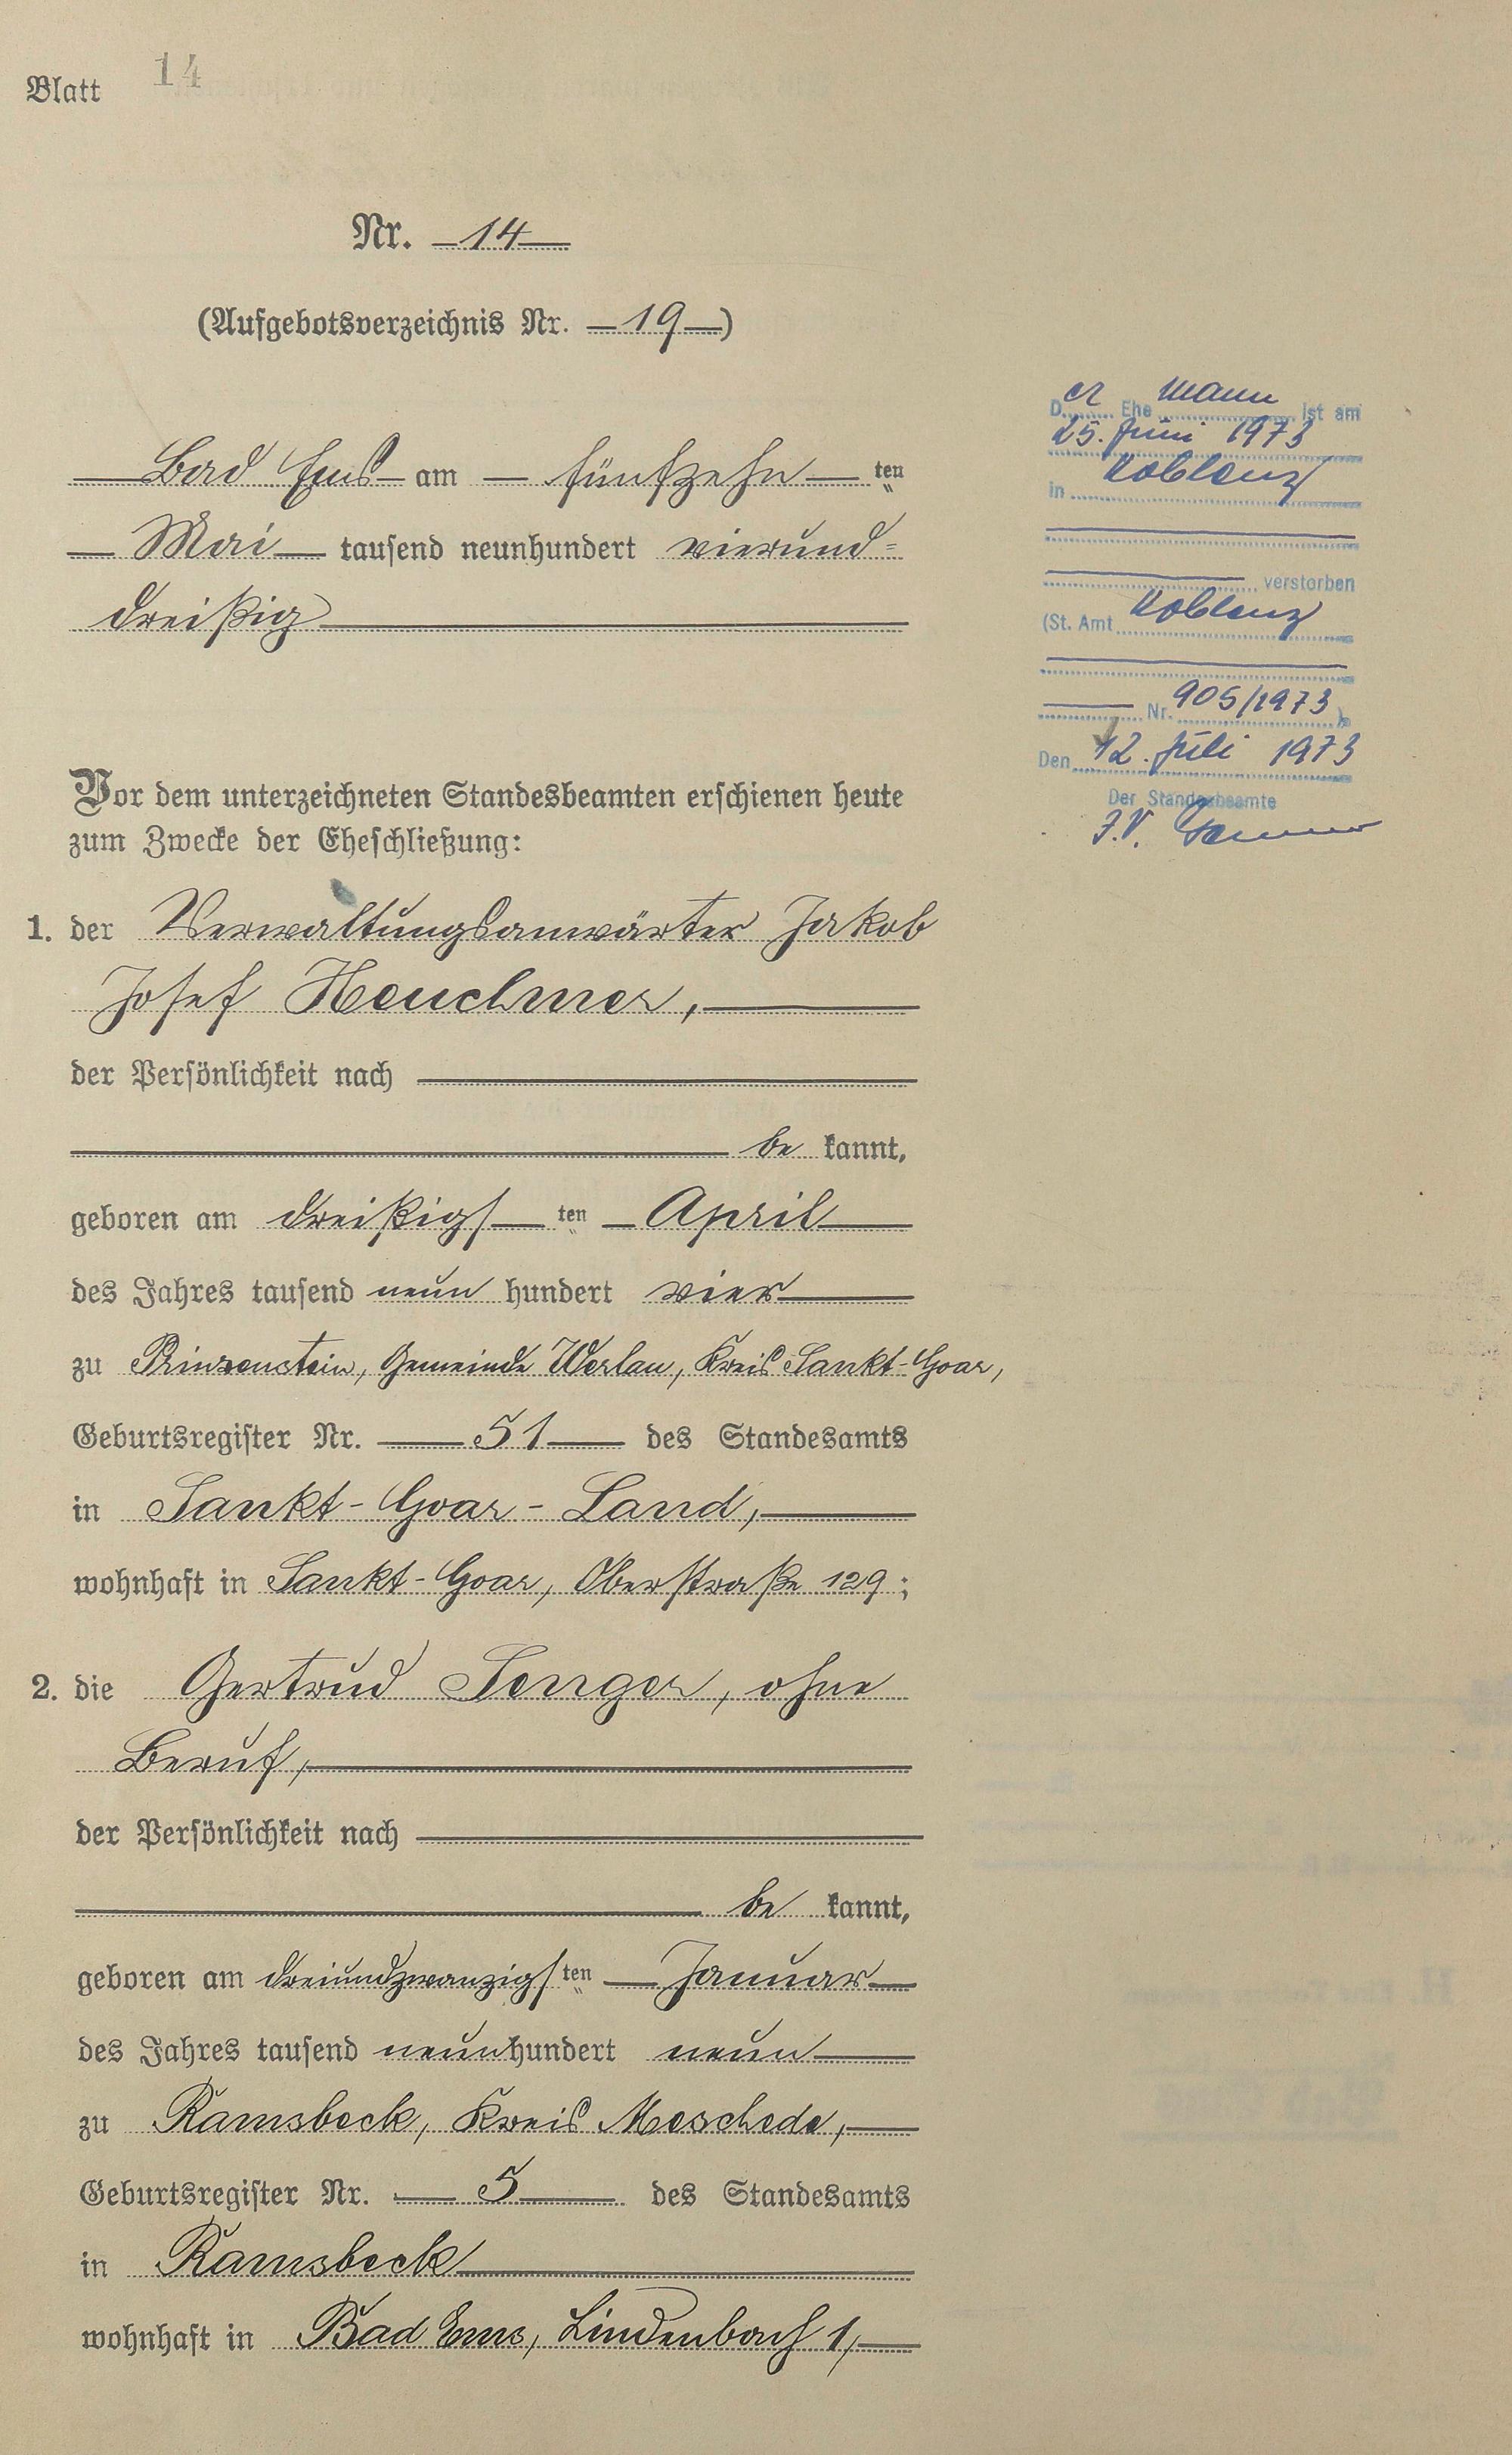 Blatt 14
Nr. 14
(Aufgebotsverzeichnis Nr. 19)
Bad Ems am fünfzehn ten
Mai tausend neunhundert vierund=
dreißig
Vor dem unterzeichneten Standesbeamten erschienen heute
zum Zwecke der Eheschließung:
1. der Verwaltungsanwärter Jakob
Josef Heuchmer,
der Persönlichkeit nach
be kannt,
geboren am dreißigs ten April
des Jahres tausend neun hundert vier
zu Prinzenstein, Gemeinde Werlau, Kreis Sankt-Goar,
Geburtsregister Nr. 51 des Standesamts
in Sankt-Goar-Land,
wohnhaft in Sankt-Goar, Oberstraße 129;
2. die Gertrud Senger, ohne
Beruf,
der Persönlichkeit nach
be kannt,
geboren am dreiundzwanzigs ten Januar
des Jahres tausend neun hundert neun
zu Ramsbeck, Kreis Meschede,
Geburtsregister Nr. 5 des Standesamts
in Ramsbeck
wohnhaft in Bad Ems, Lindenbach 1,
Der Ehemann ist am
25. Juni 1973
in Koblenz
verstorben
(St. Amt Koblenz
Nr. 905/1973)
Den 12. Juli 1973
Der Standesbeamte
J.V.